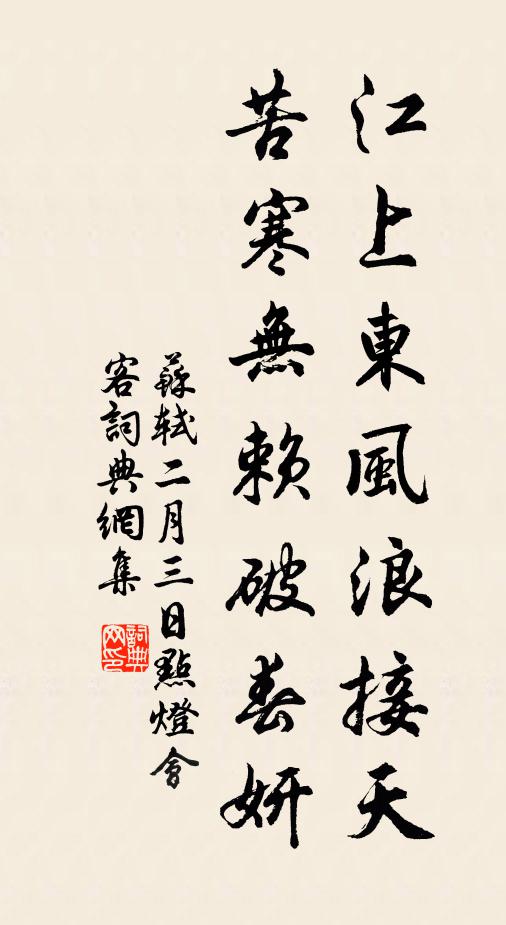 江上東風浪接天
苦寒無賴破春妍
蘇軾二月三日點燈會
客詞典網集
詞典
网印